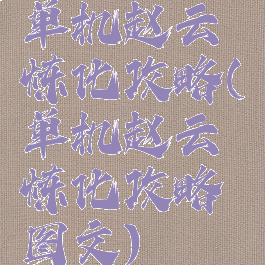 单机赵云
炼化攻略(
单机赵云
炼化攻略
图文)